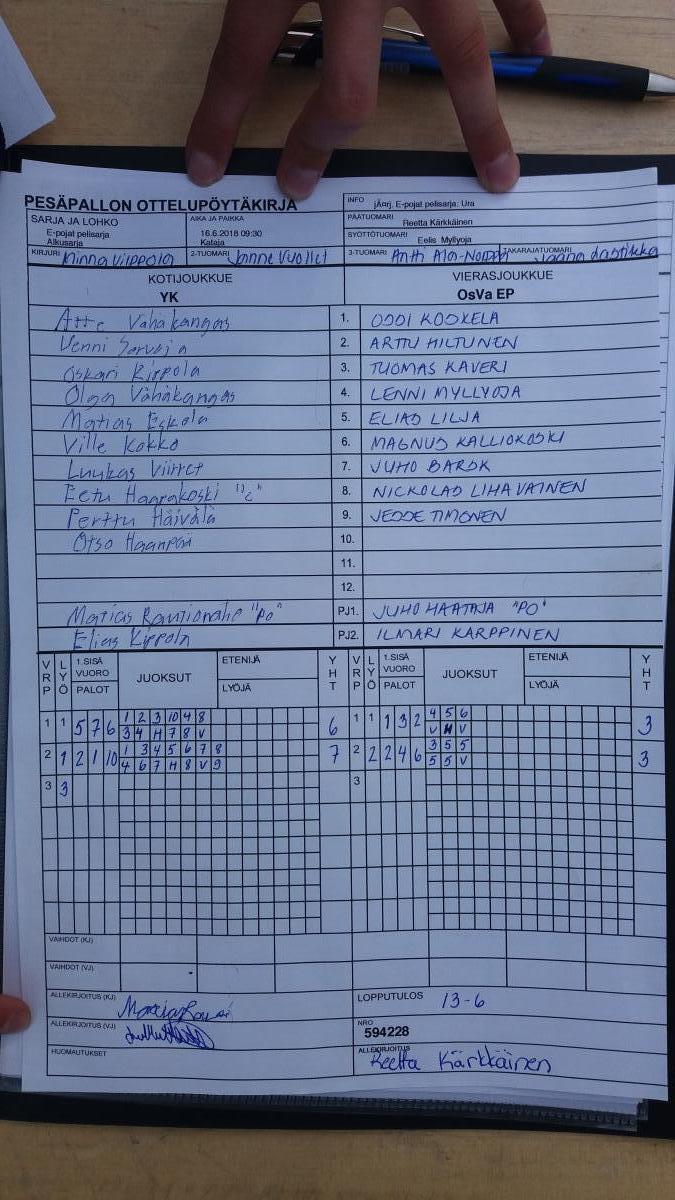 PESÄPALLON OTTELUPÖYTÄKIRJA
INFO jÃ¤rj. E-pojat pelisarja: Ura
SARJA JA LOHKO
E-pojat pelisarja
Alkusarja
AIKA JA PAIKKA
16.6.2018 09:30
Kataja
PÄÄTUOMARI
Reetta Kärkkäinen
SYÖTTÖTUOMARI
Eelis Myllyoja
KIRJURI Minna Vilppola 2-TUOMARI Janne Vuollet 3-TUOMARI Antti Ala-Nomppa TAKARAJATUOMARI
KOTIJOUKKUE
YK
VIERASJOUKKUE
OsVa EP
Atte Vähäkangas 1. OSSI KOSKELA
Venni Sorvoja 2. ARTTU HILTUNEN
Oskari Kippola 3. TUOMAS KAVERI
Olga Vähäkangas 4. LENNI MYLLYOJA
Matias Eskola 5. ELIAS LILJA
Ville Kokko 6. MAGNUS KALLIOKOSKI
Luukas Viirret 7. JUHO BARSK
Eetu Haarakoski "c" 8. NICKOLAS LIHAVAINEN
Perttu Häivälä 9. JESSE TIMONEN
Otso Haanpää 10.
11.
12.
Matias Rautionaho "PO" PJ1. JUHO HAATAJA "PO"
Elias Kippola PJ2. ILMARI KARPPINEN
VRP LYÖ 1.SISÄ VUORO PALOT JUOKSUT ETENIJÄ LYÖJÄ YHT VRP LYÖ 1.SISÄ VUORO PALOT JUOKSUT ETENIJÄ LYÖJÄ YHT
1 1 5 7 6 1 2 3 10 4 8 6 1 1 1 3 2 4 5 6 3
3 4 H 7 8 V V H V
2 1 2 1 10 1 3 4 5 6 7 8 7 2 2 2 4 6 3 5 5 3
4 6 7 H 8 V 9 5 5 V
3 3 3
VAIHDOT (KJ)
VAIHDOT (VJ)
ALLEKIRJOITUS (KJ)
LOPPUTULOS 13-6
ALLEKIRJOITUS (VJ)
NRO
594228
HUOMAUTUKSET
ALLEKIRJOITUS
Reetta Kärkkäinen